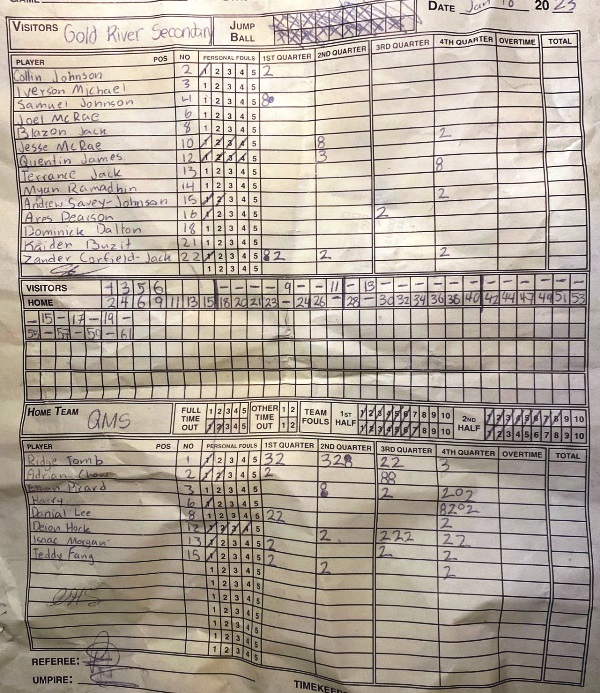 DATE Jan 2023
VISITORS Gold River Secondary JUMP BALL
PLAYER POS NO PERSONAL FOULS 1ST QUARTER 2ND QUARTER 3RD QUARTER 4TH QUARTER OVERTIME TOTAL
Collin Johnson 2 1 2 3 4 5 2
Iverson Michael 3 1 2 3 4 5
Samuel Johnson 4 1 2 3 4 5
Joel McRae 6 1 2 3 4 5
Blazon Jack 8 1 2 3 4 5 2
Jesse McRae 10 1 2 3 4 5 8
Quentin James 12 1 2 3 4 5 3
Terrance Jack 13 1 2 3 4 5 8
Myan Ramadhin 14 1 2 3 4 5
Andrew Savey-Johnson 15 1 2 3 4 5 2
Ares Dearson 16 1 2 3 4 5 2
Dominick Dalton 18 1 2 3 4 5
Kaiden Buzit 21 1 2 3 4 5
Zander Corfield-Jack 22 1 2 3 4 5 2 2 2
1 2 3 4 5
VISITORS 1 3 5 6 - - - - 9 - - 11 - 13
HOME 2 4 6 9 11 13 15 18 20 21 23 - 24 26 - 28 - 30 32 34 36 38 40 42 44 47 49 51 53
- 15 - 17 - 19 -
55 - 57 - 59 - 61
HOME TEAM QMS FULL TIME OUT 1 2 3 4 5 OTHER TIME OUT 1 2 TEAM FOULS 1ST HALF 1 2 3 4 5 6 7 8 9 10 2ND HALF 1 2 3 4 5 6 7 8 9 10
1 2 3 4 5 1 2 1 2 3 4 5 6 7 8 9 10 1 2 3 4 5 6 7 8 9 10
PLAYER POS NO PERSONAL FOULS 1ST QUARTER 2ND QUARTER 3RD QUARTER 4TH QUARTER OVERTIME TOTAL
Ridge Tomb 1 1 2 3 4 5 32 328 22 3
Adrian Chow 2 1 2 3 4 5 2 88
Picard 3 1 2 3 4 5 2 202
Harry 6 1 2 3 4 5 8202
Danial Lee 8 1 2 3 4 5 22 2
Deion Hock 12 1 2 3 4 5 2 222 22
Isaac Morgan 13 1 2 3 4 5 2 2 2
Teddy Fang 15 1 2 3 4 5 2 2 2
1 2 3 4 5
1 2 3 4 5
1 2 3 4 5
1 2 3 4 5
1 2 3 4 5
1 2 3 4 5
REFEREE:
UMPIRE: